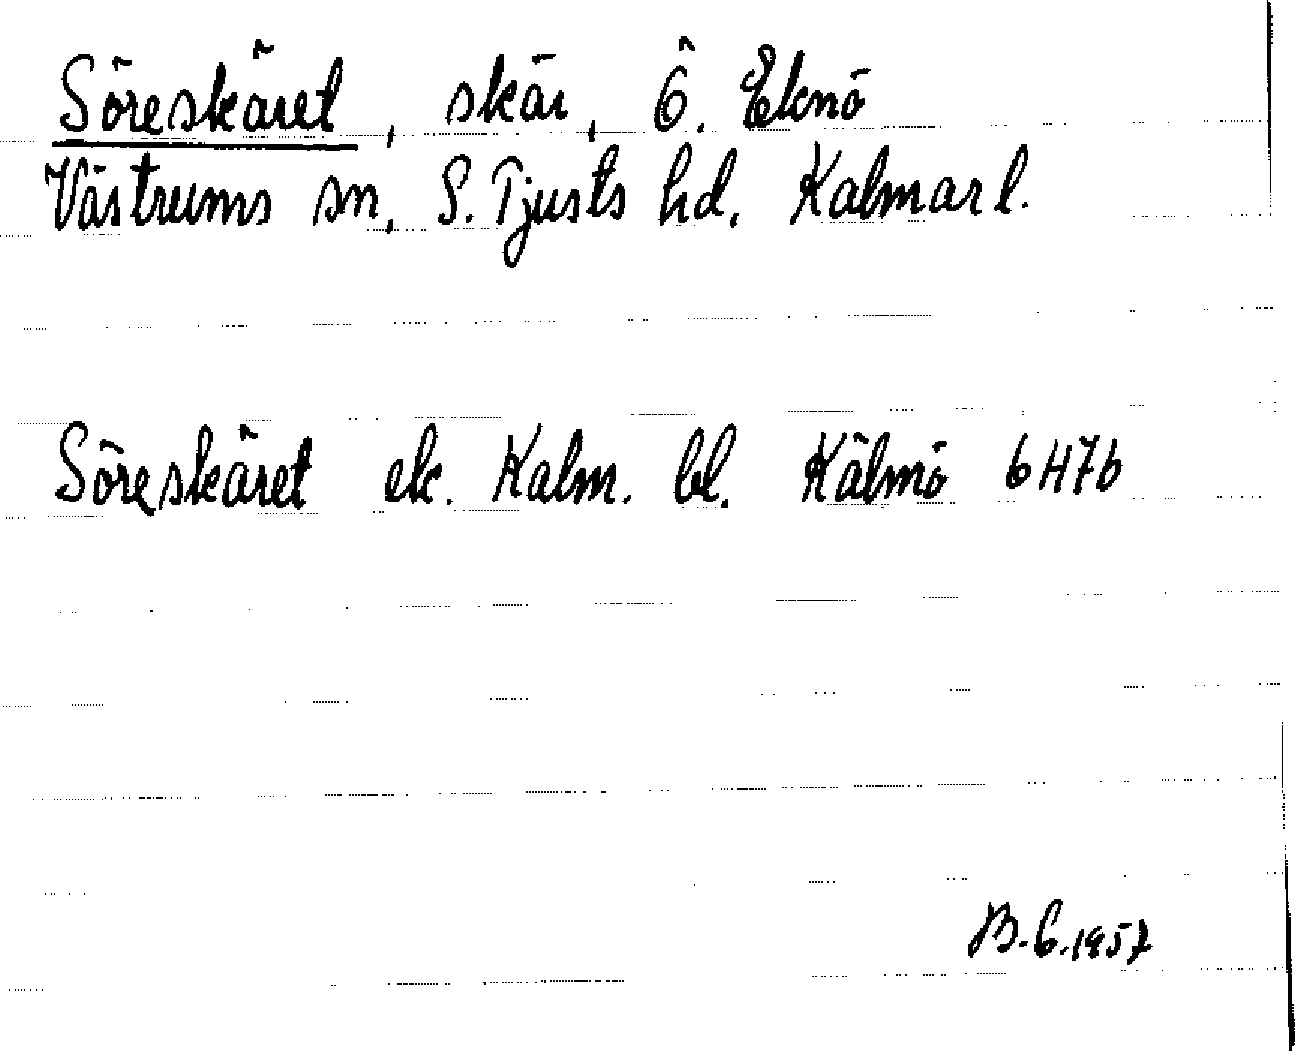 Söreskäret, skär, Ö. Eknö
Västrums sn, S. Tjusts hd, Kalmar l.
Söreskäret ek. Kalm. bl. Kälmö 6H7b
B.G. 1957